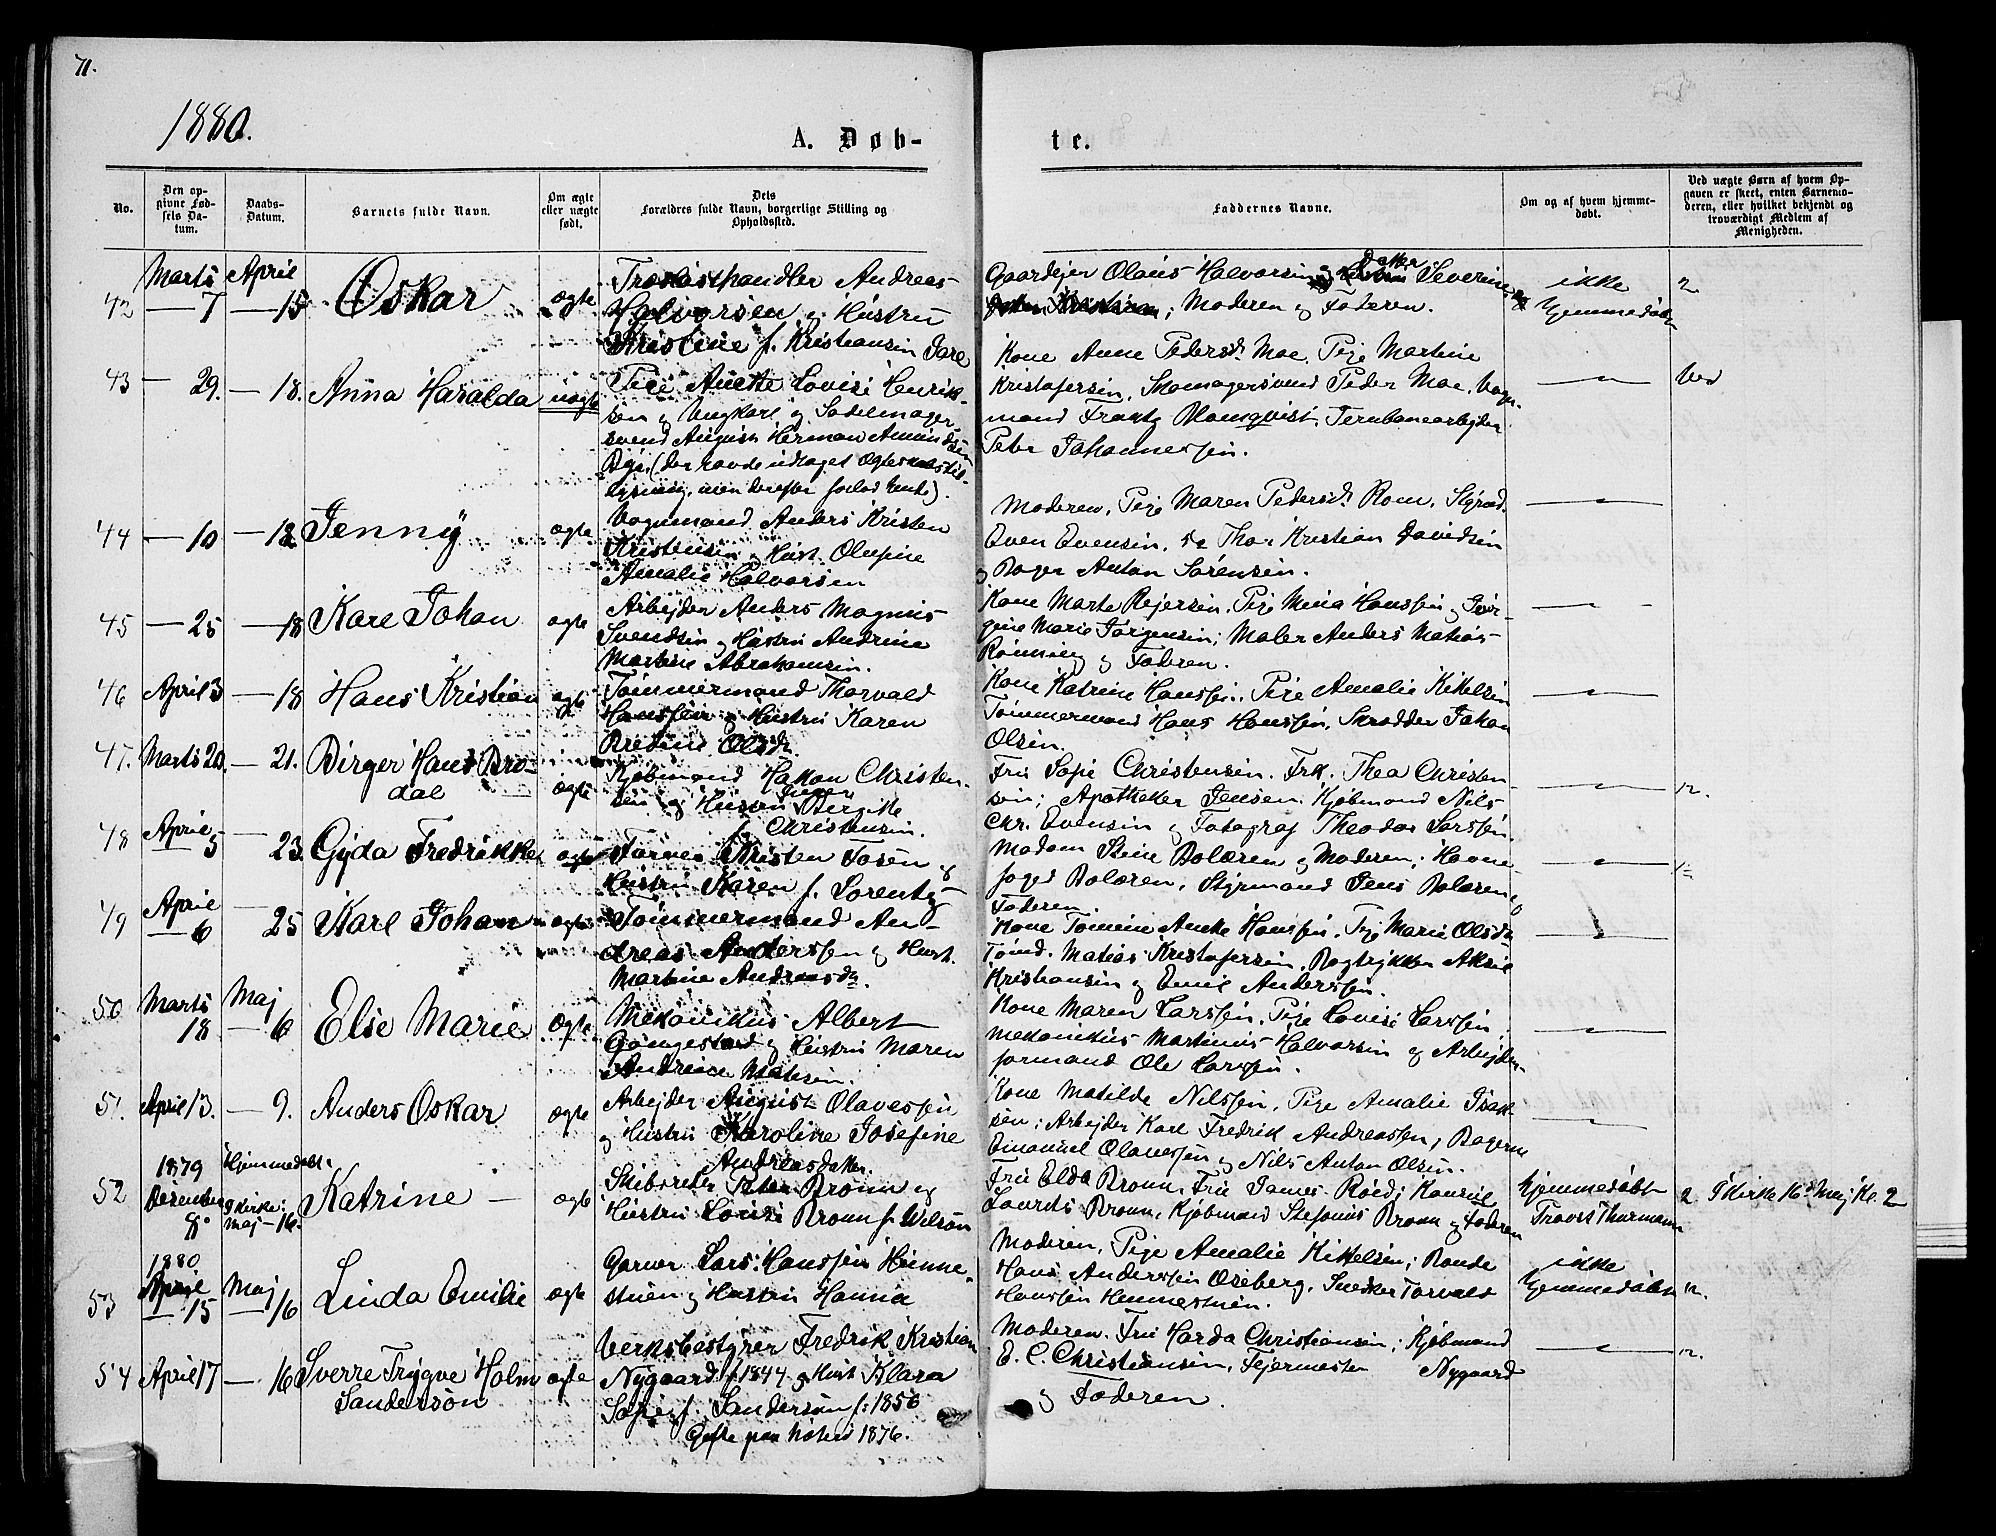 71.
1880.
A. Døb-
te.
No.
Den op-
givne Fød-
sels Da-
tum.
Daabs-
Datum.
Barnets fulde Navn.
Om ægte
eller uægte
født.
Dets
Forældres fulde Navn, borgerlige Stilling og
Opholdssted.
Faddernes Navne.
Om og af hvem hjemme-
døbt.
Ved uægte Børn af hvem Op-
gaven er skeet, enten Barnemo-
deren, eller hvilket bekjendt og
troværdigt Medlem af
Menigheden.
42
Marts
7
April
15
Oskar
ægte
Trælasthandler Andreas
Halvorsen og Hustru
Kristine f. Kristiansen
Gaardejer Olaus Halvorsen og Datter Severine,
Moderen og Faderen.
ikke
hjemmedøbt
2
43
— 29.
— 18.
Anna Haralda
uægte
Pige Anette Lovise Henrik-
sen og Ungkarl og Sadelmager-
svend August Herman Amundsen
(der havde udtaget Ægteskabslys-
lysning, men derefter forlod hende).
Kone Anne Pedersd. Moe, Pige Martine
Kristofersen, Skomagersvend Peder Moe, Vogn-
mand Frantz Blomqvist, Jernbanearbejder
Peter Johannessen.
44
— 10
— 18
Jenny
ægte
Vognmand Anders Kristen
Kristensen og Hust. Olufine
Amalie Halvorsen
Moderen, Pige Maren Pedersd. Rom, Styrmd.
Even Evensen, Thor Kristian Davidsen
og Bager Anton Sørensen.
45
— 25
— 18
Karl Johan
ægte
Arbejder Anders Magnus
Svendsen og Hustru Andrine
Martine Abrahamsen.
Kone Marte Rejersen, Pige Mina Hanssen og Jør-
gine Marie Jørgensen; Maler Anders Matias
Rønning og Faderen.
46
April 3
— 18
Hans Kristian
ægte
Tømmermand Thorvald
Hanssen og Hustru Karen
Bredine Olsd.
Kone Katrine Hanssen, Pige Amalie Kittelsen
Tømmermand Hans Hanssen, Skrædder Johan
Olsen.
47.
Marts 20.
— 21.
Birger Hans Bro-
dal
ægte
Kjøbmand Hakon Christen-
sen og Hustru Inger Birgitte
f. Christensen.
Fru Sofie Christensen, Frk. Thea Christen
sen; Apotheker Jensen, Kjøbmand Nils
Chr. Evensen og Fotograf Theodor Larssen.
48
April
5
— 23
Gyda Fredrikke
ægte
Kristen Fosen og
Hustru Karen f. Lorentz
Madam Stine Bolæren og Moderen; Havne-
foged Bolæren, Styrmand Jens Bolæren og
Faderen.
49
April
6
— 25
Karl Johan
uægte
Tømmermand An-
dreas Anderssen og Hust.
Martine Andreasd.
Kone Tomine Anette Hanssen, Pige Marie Olsd.
Tømd. Matias Kristofersen, Bogtrykker Aksel
Kristiansen og Emil Anderssen.
50
Marts
18
Maj
— 6
Else Marie
ægte
Mekanikus Albert
Gångestad og Hustru Maren
Andrine Matisen.
Kone Maren Larssen, Pige Lovise Larssen
Mekanikus Martinius Halvorsen og Arbejder-
formand Ole Larssen.
51.
April 13.
— 9.
Anders Oskar
ægte
Arbejder August Olavessen
og Hustru Karoline Josefine
Andreasdatter.
Kone Matilde Nilssen, Pige Amalie Isak-
sen; Arbejder Karl Fredrik Andreassen, Bagerne
Emanuel Olavessen og Nils Anton Olsen.
52
1879
Desember
8.
Hjemmedøbt.
I Kirke:
Maj — 16.
Katrine —
ægte
Skibsreder Peter Bronn og
Hustru Louise Bronn f. Wilson
Fru Elda Bronn, Fru James Röed; Konsul
Laurits Bronn, Kjøbmand Stefanus Bronn og Faderen
hjemmedøbt
Provst Thurmann
2 I Kirke 16de Maj Kl. 2
53
1880
April
— 15
Maj
16
Linda Emilie
ægte
Garver Lars Hanssen Hemme-
stuen og Hustru Hanna
Moderen, Pige Amalie Kittelsen; Bonde
Hans Anderssen Oseberg, Snekker Torvald
Hanssen Hemmestuen.
ikke
hjemmedøbt
54
April 17
— 16
Sverre Trygve Holm
Sanderson
ægte
Verksbestyrer Fredrik Kristian
Nygaard f. 1844 og Hust. Klara
Sofie f. Sanderson f. 1850
Gifte paa 1876.
Moderen, Fru Harda Christiansen; Kjøbmand
E. C. Christiansen, Fejermester Nygaard
og Faderen.